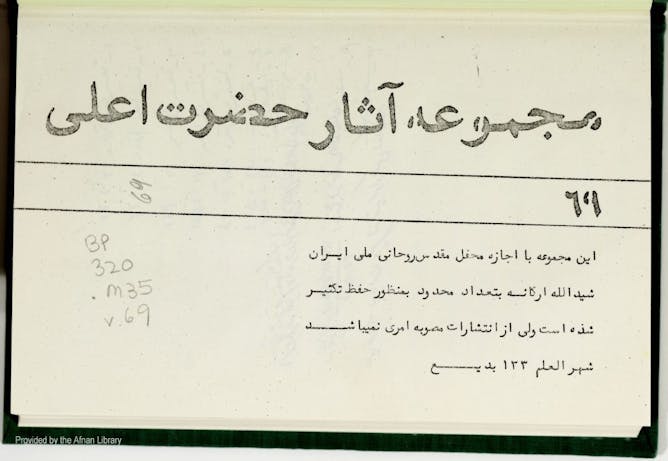 مجموعه آثار حضرت اعلی
69
٦٩
این مجموعه با اجازه محفل مقدس روحانی ملی ایران
شیدالله ارکانه بتعداد محدود بمنظور حفظ تکثیر
شده است ولی از انتشارات مصوبه امری نمیباشد
شهر العلم ۱۳۳ بدیع
BP
320
.M35
v.69
Provided by the Afnan Library